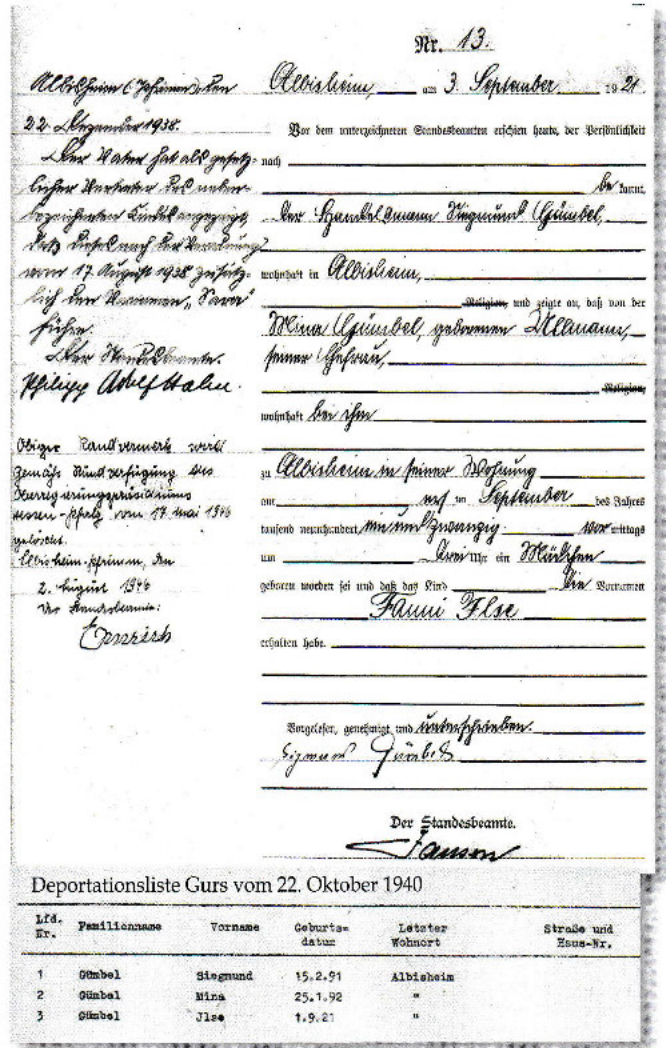 Nr. 13.
Albisheim, am 3. September 1921
Vor dem unterzeichneten Standesbeamten erschien heute, der Persönlichkeit
nach
bekannt,
der Handelsmann Siegmund Gümbel,
wohnhaft in Albisheim,
Religion, und zeigte an, daß von der
Mina Gümbel, geborenen Ullmann,
seiner Ehefrau,
Religion,
wohnhaft bei ihm
zu Albisheim in seiner Wohnung
am ersten September des Jahres
tausend neunhundert ein und zwanzig vormittags
um drei Uhr ein Mädchen
geboren worden sei und daß das Kind die Vornamen
Fanni Ilse
erhalten habe.
Vorgelesen, genehmigt und unterschrieben.
Gümbel
Der Standesbeamte.
Albisheim (Pfrimm), den
22. Dezember 1938.
Der Vater hat als gesetz-
licher Vertreter des neben-
bezeichneten Kindes angezeigt,
daß dieses nach der Verordnung
vom 17. August 1938 zusätz-
lich den Vornamen „Sara"
führe.
Der Standesbeamte.
Philipp Adolf
Obiger Randvermerk wird
gemäß Rundverfügung des
Oberregierungspräsidiums
Hessen-Pfalz vom 17 Mai 1946
gelöscht.
Albisheim-Pfrimm, den
2. August 1946
Der Standesbeamte:
Deportationsliste Gurs vom 22. Oktober 1940
Lfd. Nr. Familienname Vorname Geburts=datum Letzter Wohnort Straße und Haus-Nr.
1 Gümbel Siegmund 15.2.91 Albisheim
2 Gümbel Mina 25.1.92 "
3 Gümbel Jlse 1.9.21 "